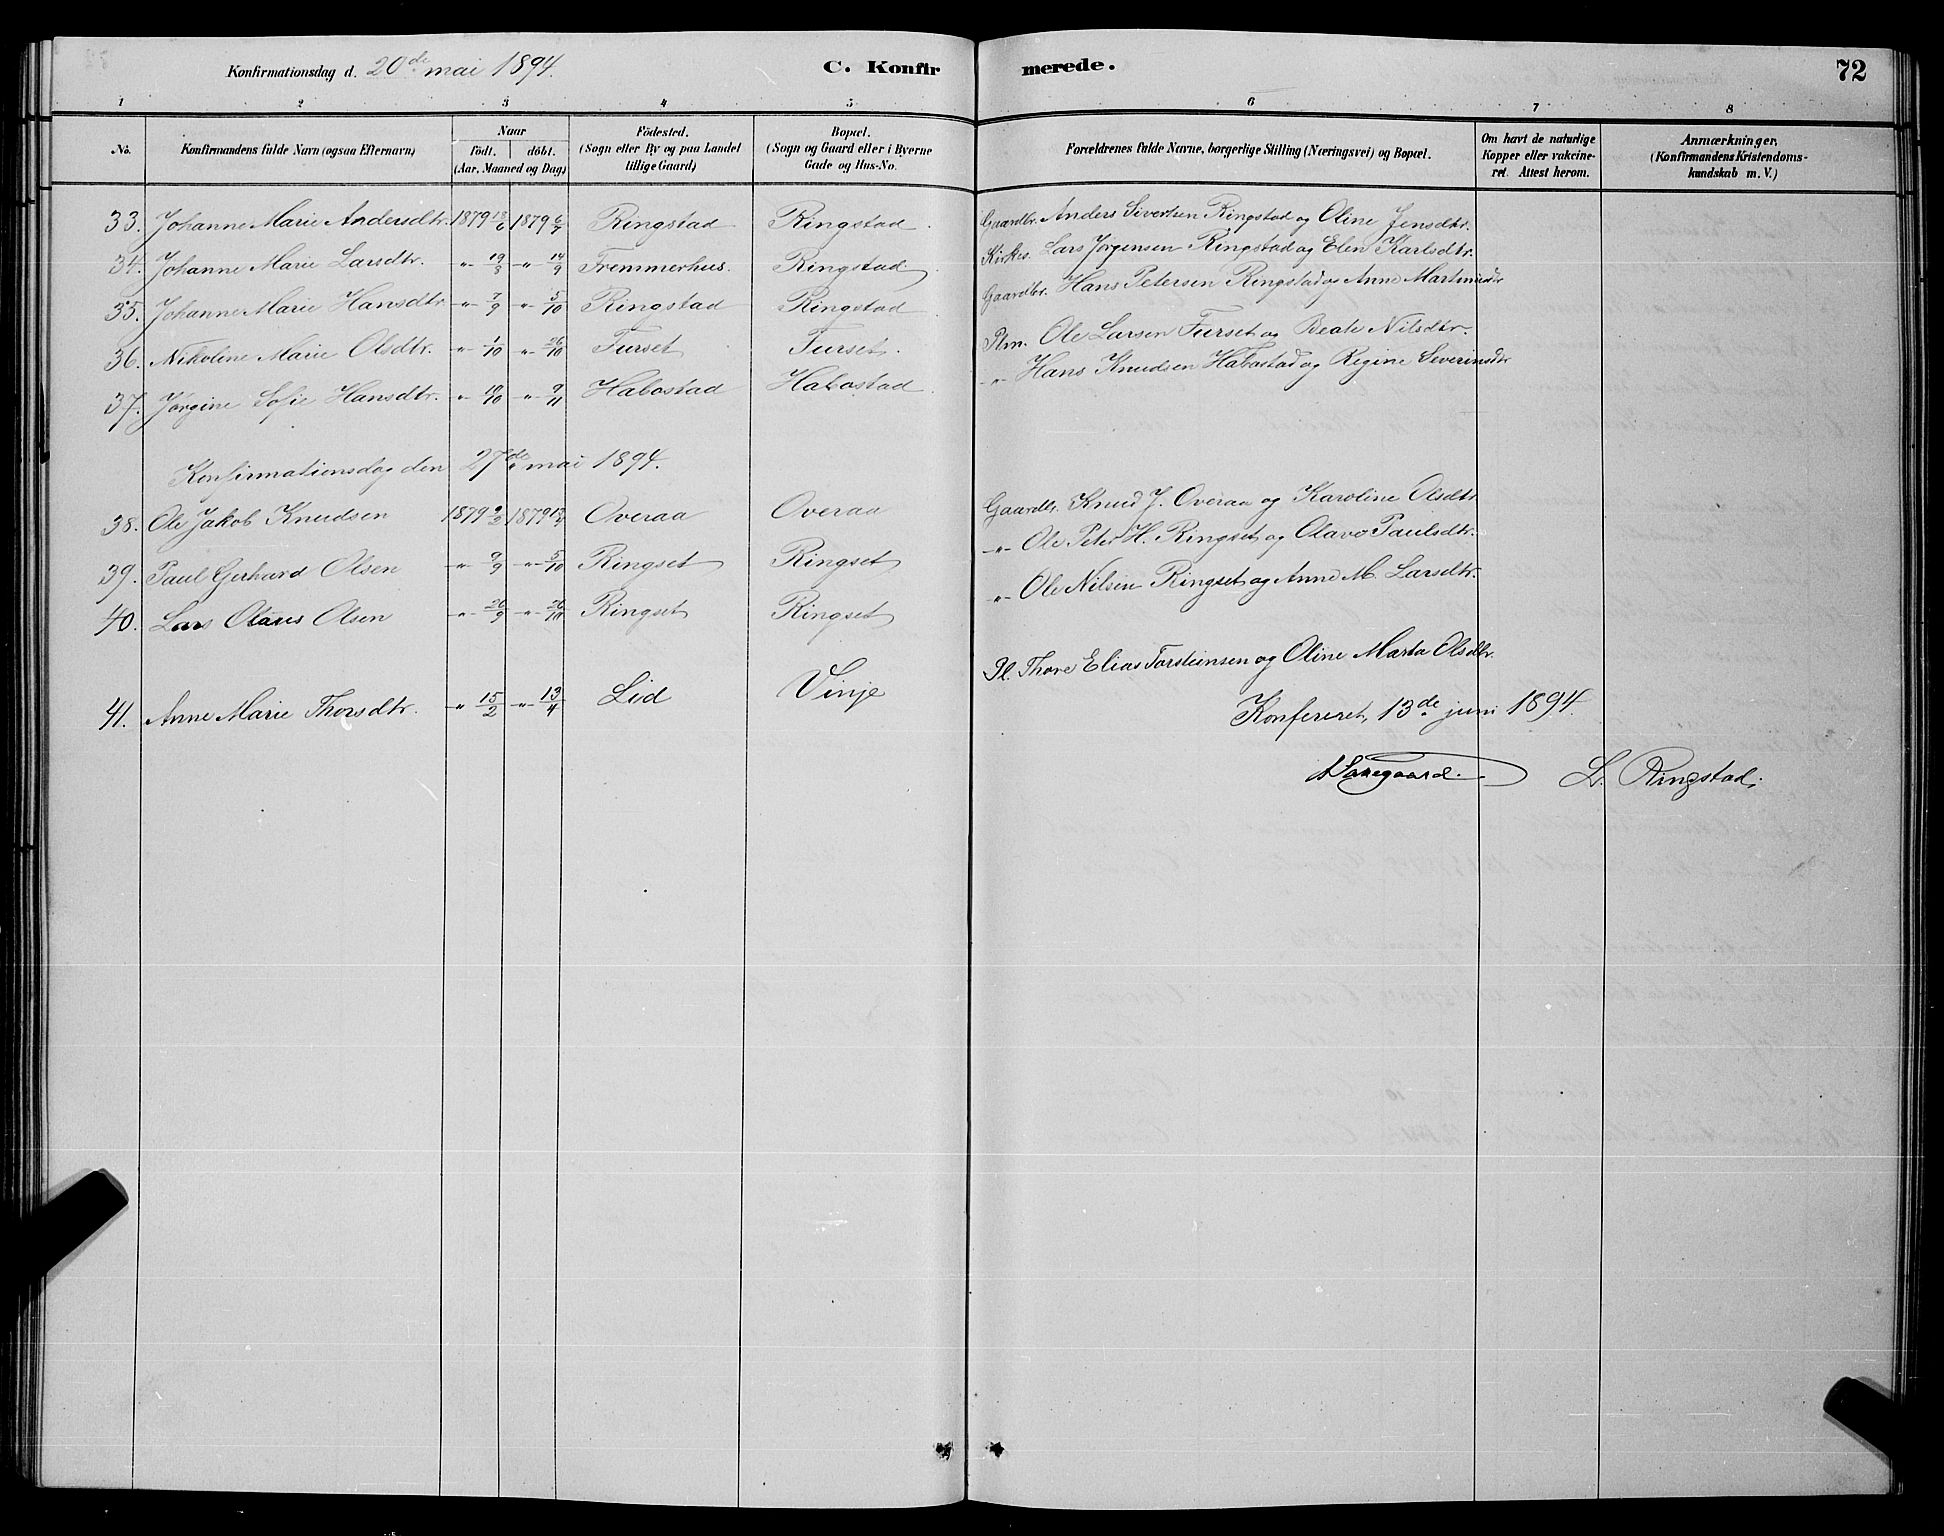 Konfirmationsdag d. 20de mai 1894. C. Konfirmerede. 72
1 2 3 4 5 6 7 8
No. Konfirmandens fulde Navn (ogsaa Efternavn) Naar Födt. döbt. (Aar, Maaned og Dag) Födested. (Sogn eller By og paa Landet tillige Gaard) Bopæl. (Sogn og Gaard eller i Byerne Gade og Hus-No. Forældrenes fulde Navne, borgerlige Stilling (Næringsvei) og Bopæl. Om havt de naturlige Kopper eller vakcineret. Attest herom. Anmærkninger. (Konfirmandens Kristendomskundskab m. V.)
33. Johanne Marie Andersdtr. 1879 18/6 1879 6/7 Ringstad Ringstad Gaardbr. Anders Sivertsen Ringstad og Oline Jensdtr.
34. Johanne Marie Larsdtr. -"- 19/8 -"- 14/9 Fremmerhus. Ringstad Kirkes. Lars Jørgensen Ringstad og Elen Karlsdtr.
35. Johanne Marie Hansdtr. -"- 7/9 -"- 5/10 Ringstad Ringstad Gaardbr. Hans Petersen Ringstad og Anne Martinusdtr
36. Nikoline Marie Olsdtr. -"- 1/10 -"- 26/10 Furset Furset. Plm. Ole Larsen Furset og Beate Nilsdtr.
37. Jørgine Sofie Hansdtr. -"- 10/10 -"- 9/11 Habostad Habostad -"- Hans Knudsen Habostad og Regine Severinsdtr
Konfirmationsdag den 27de mai 1894.
38. Ole Jakob Knudsen 1879 1879 Overaa Overaa Gaardbr. Knud J. Overaa og Karoline Olsdtr
39. Paul Gerhard Olsen -"- 9/9 -"- 5/10 Ringset Ringset -"- Ole Peter H. Ringset og Olava Paulsdtr.
40. Lars Olaus Olsen -"- 20/9 -"- 26/10 Ringset Ringset -"- Ole Nilsen Ringset og Anne M. Larsdtr.
41. Anne Marie Thorsdtr. -"- 15/2 -"- 13/4 Lid Vinje Pl. Thore Elias Torsteinsen og Oline Marta Olsdtr.
Konfereret, 13de juni 1894.
L. Ringstad.